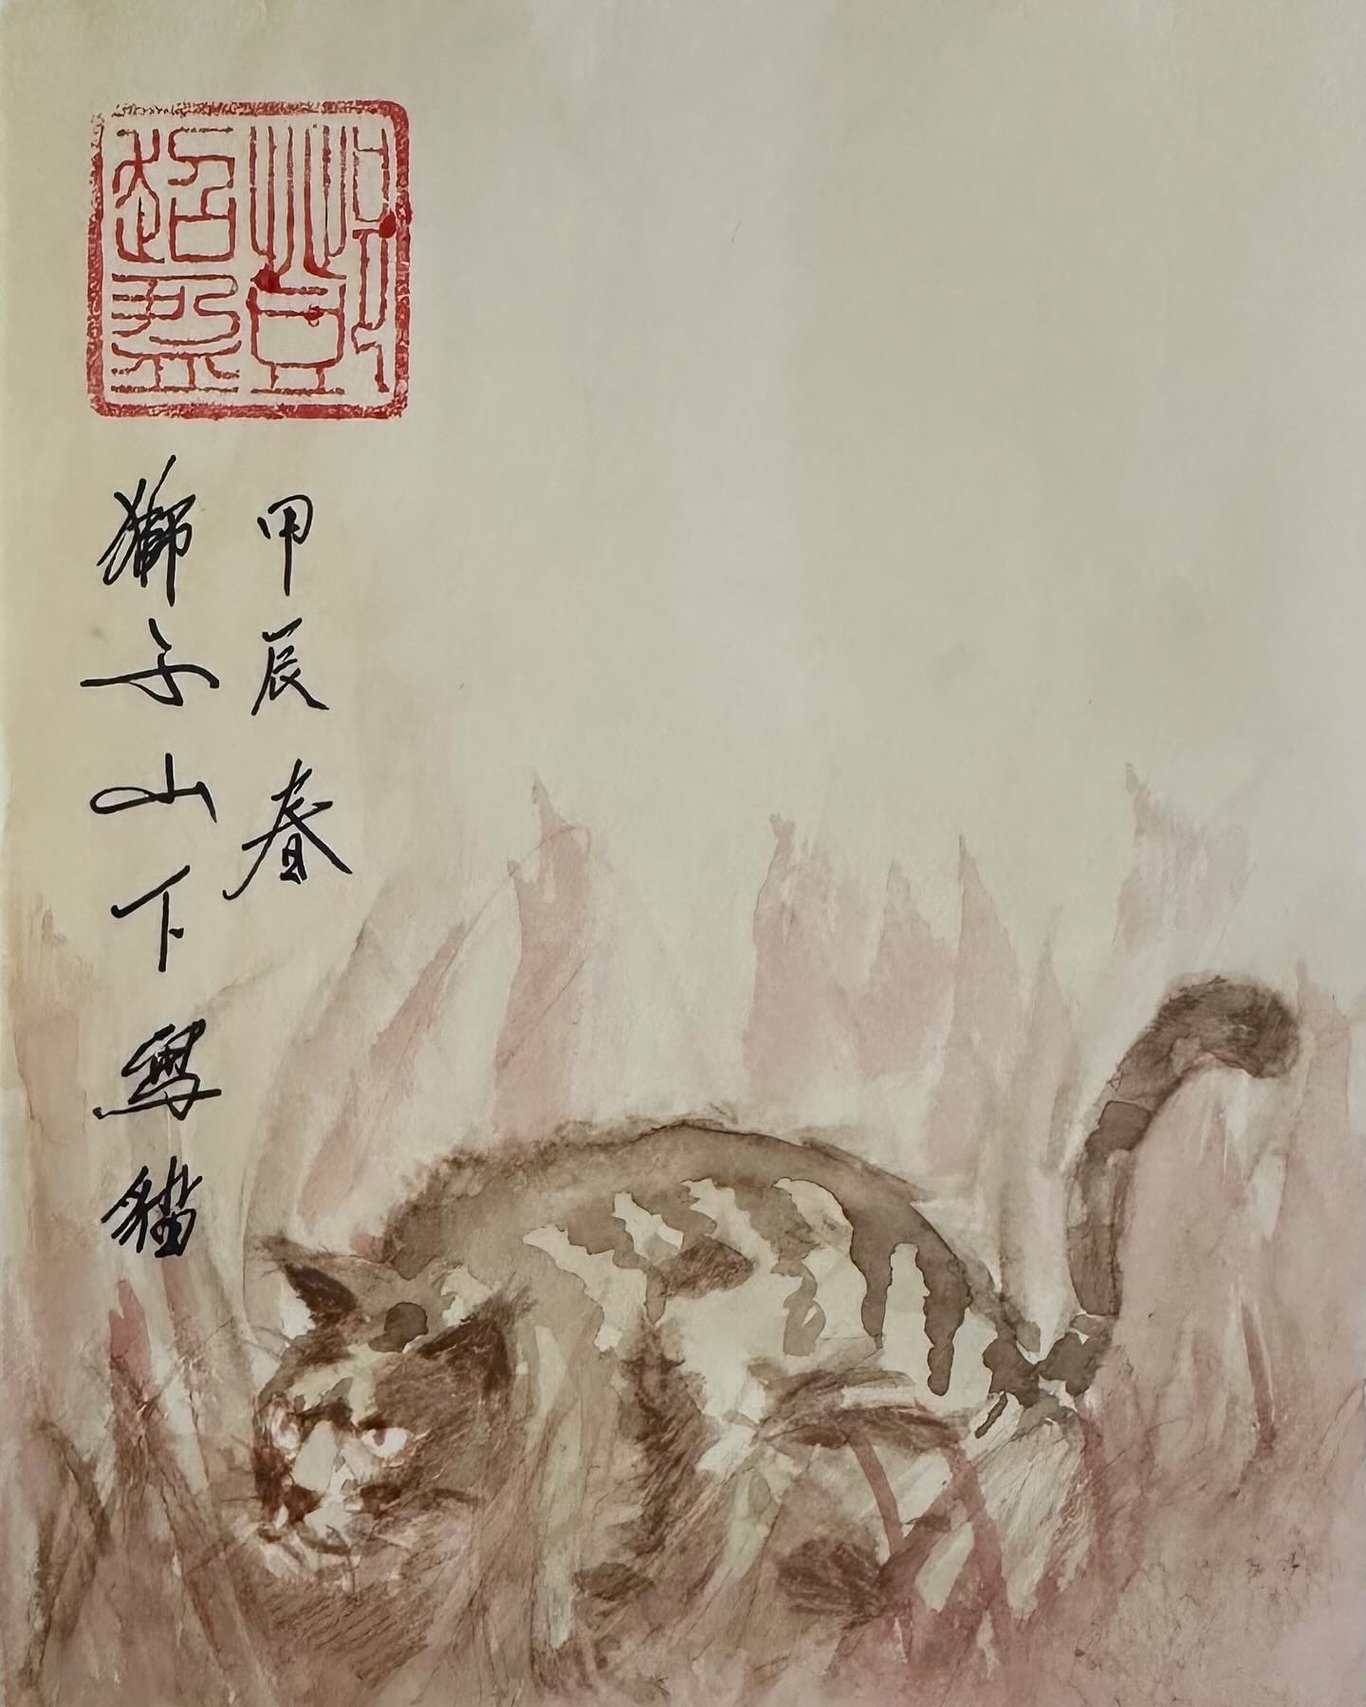 甲辰春
獅子山下寫貓